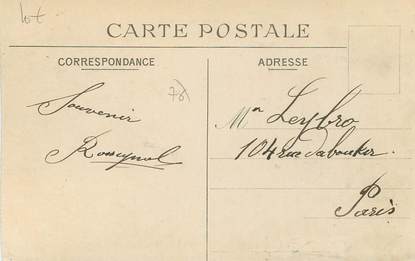 lot
CARTE POSTALE
CORRESPONDANCE
ADRESSE
78)
Souvenir
Rossignol
Mr Leybro
104 rue d'aboukir.
Paris